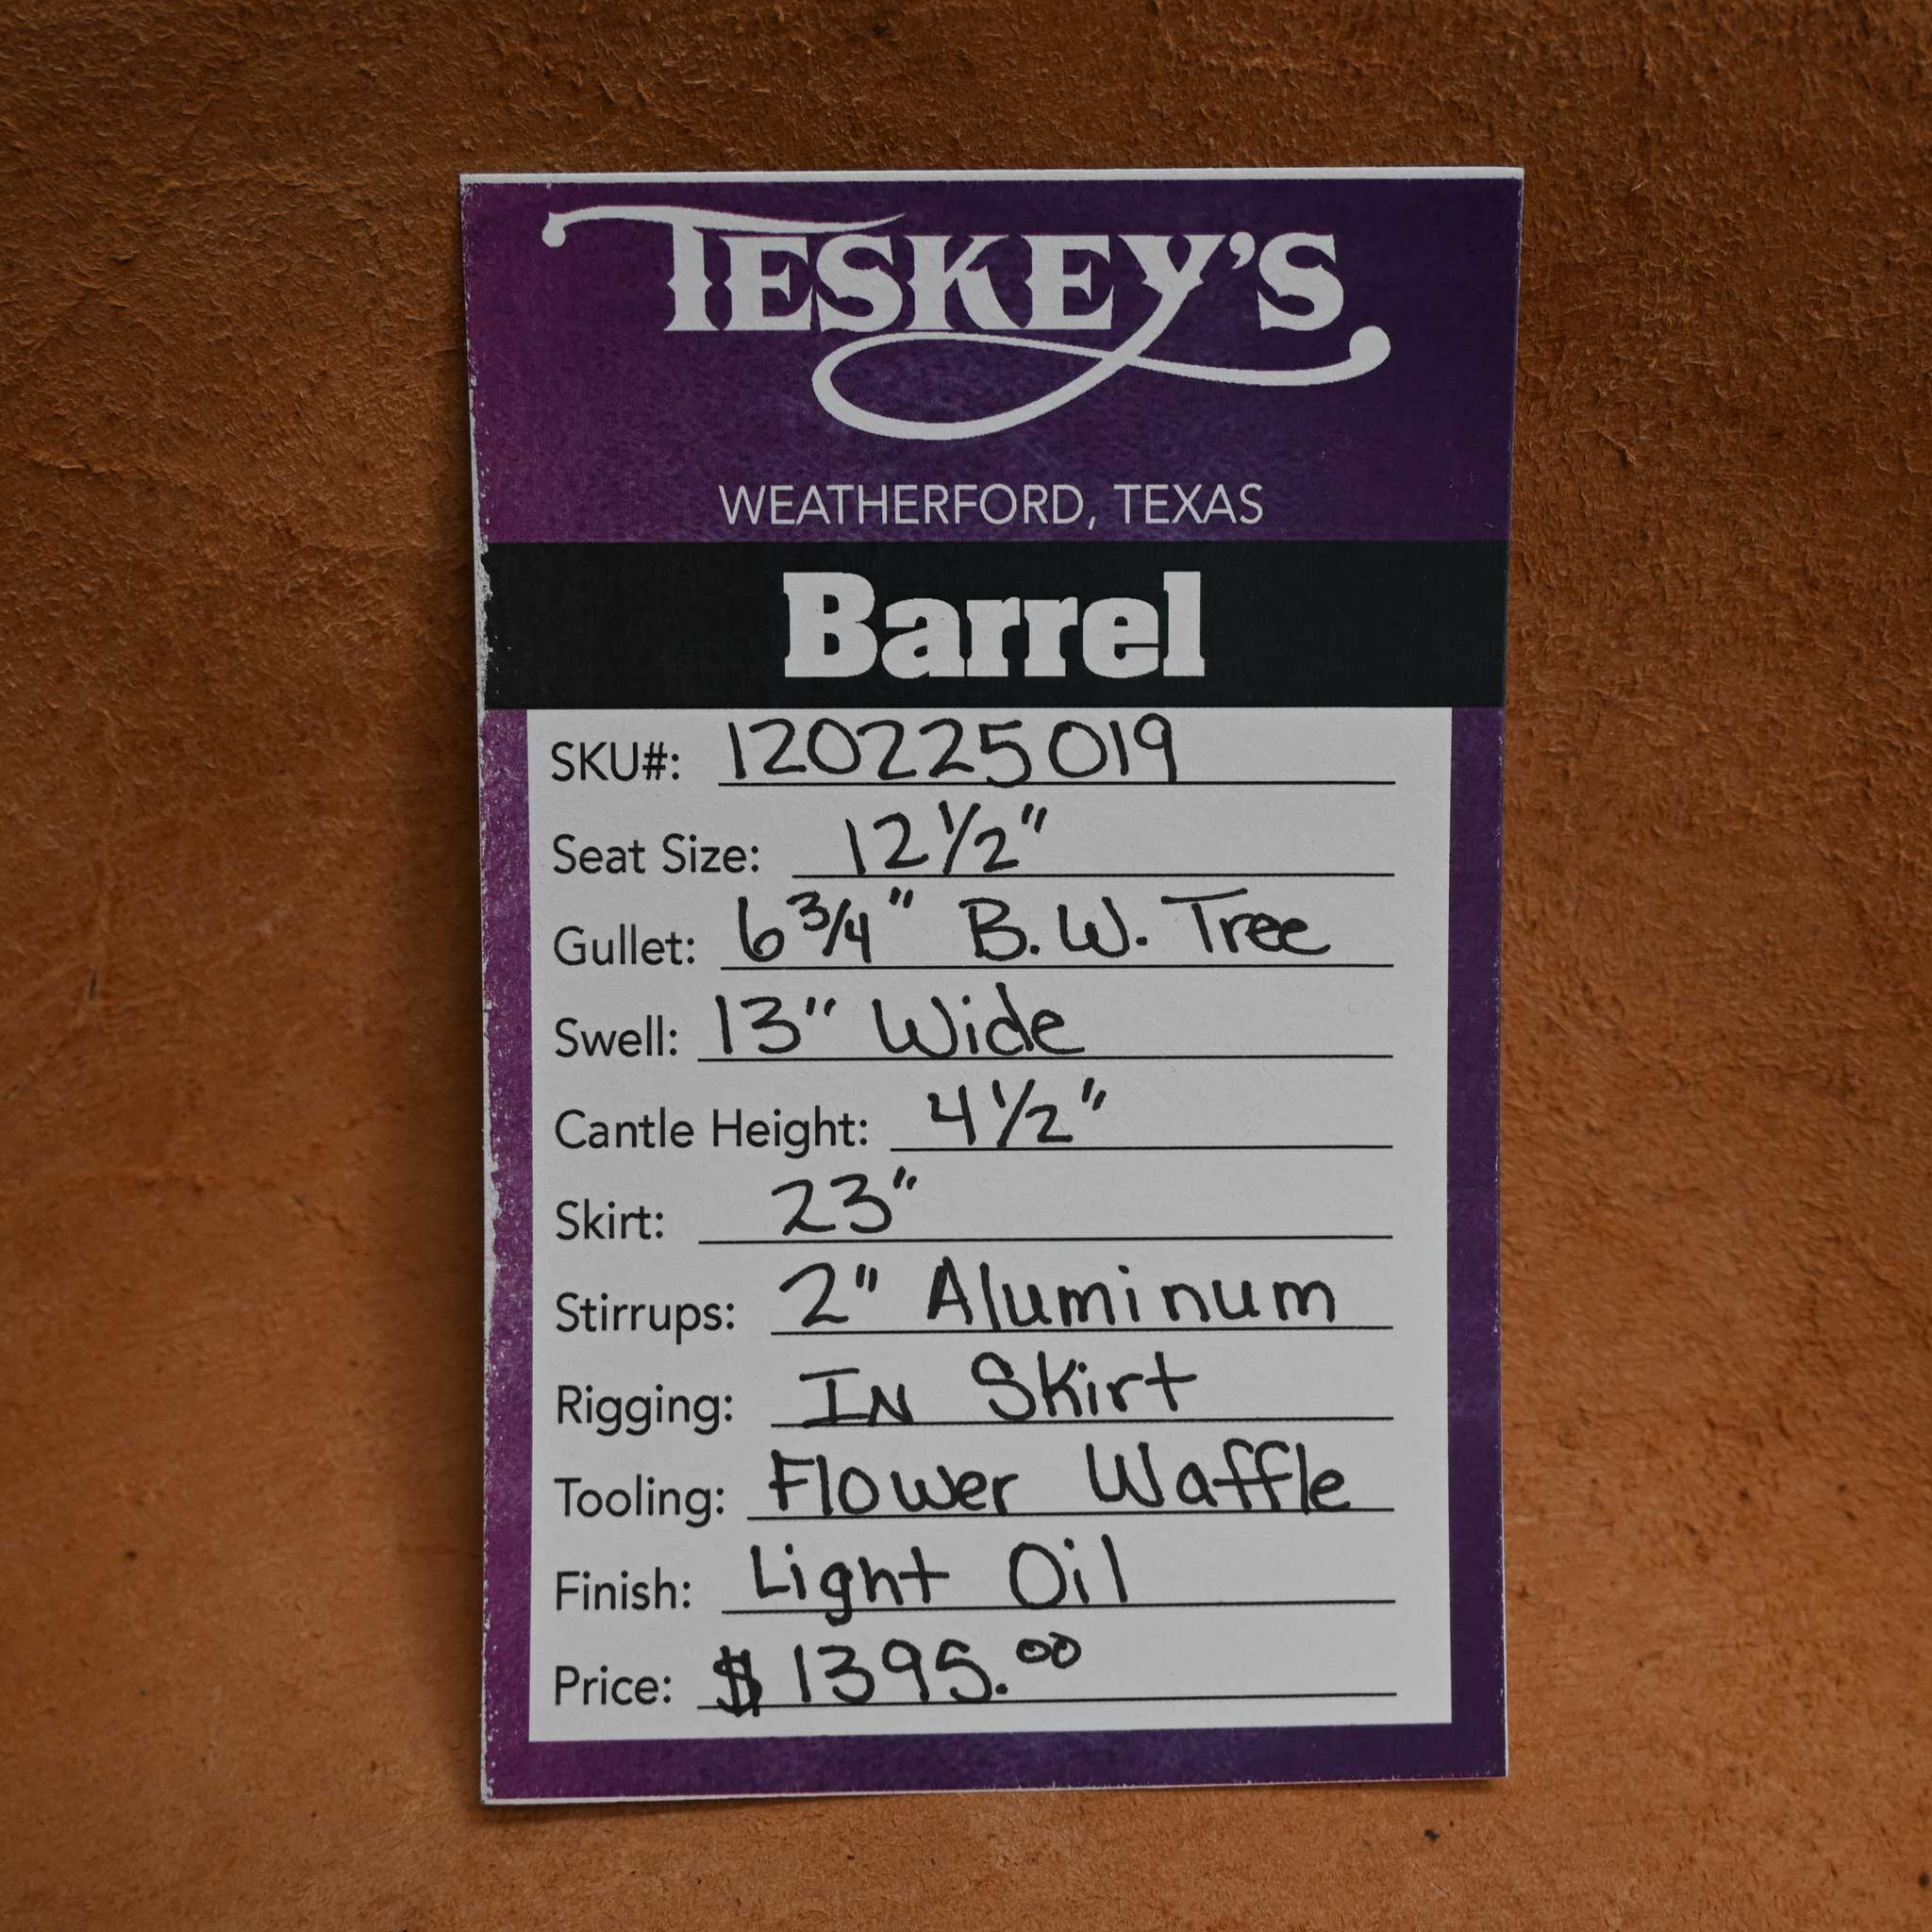 TESKEY'S
WEATHERFORD, TEXAS
Barrel
SKU#: 120225019
Seat Size: 12 1/2"
Gullet: 6 3/4" B.W. Tree
Swell: 13" Wide
Cantle Height: 4 1/2"
Skirt: 23"
Stirrups: 2" Aluminum
Rigging: IN Skirt
Tooling: Flower Waffle
Finish: Light Oil
Price: $1395.00